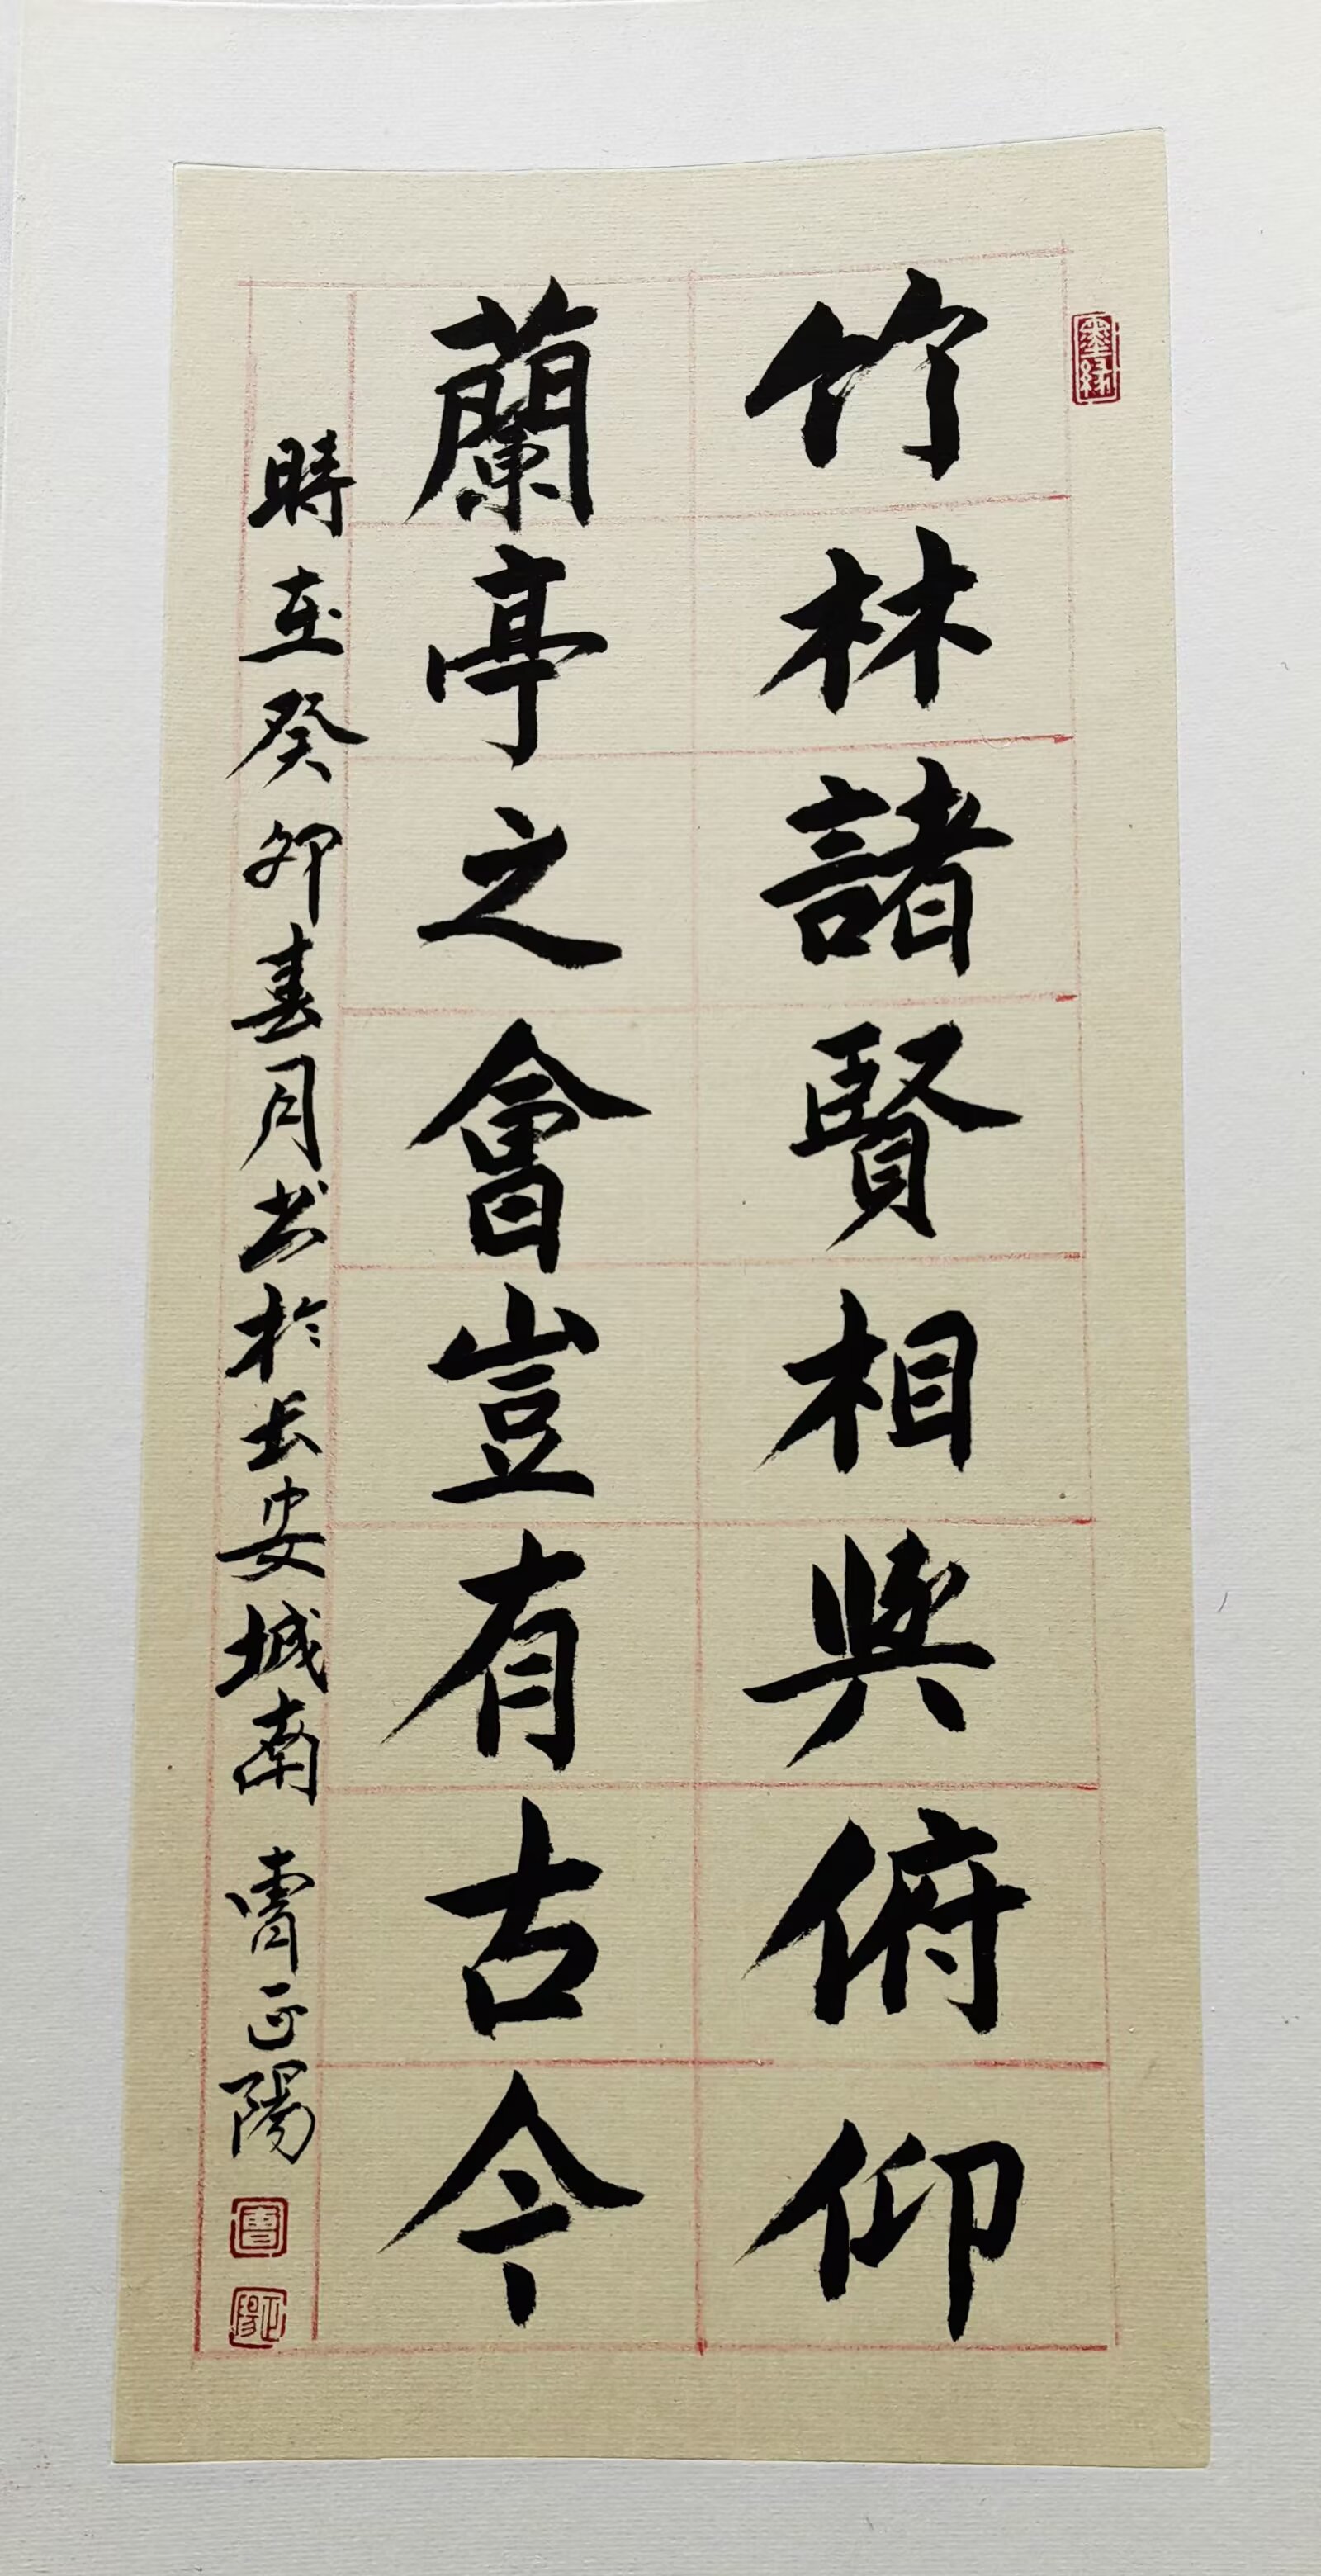 竹林諸賢相與俯仰
蘭亭之會豈有古今
時在癸卯春月书於长安城南 曹正陽
墨缘
曹
正陽